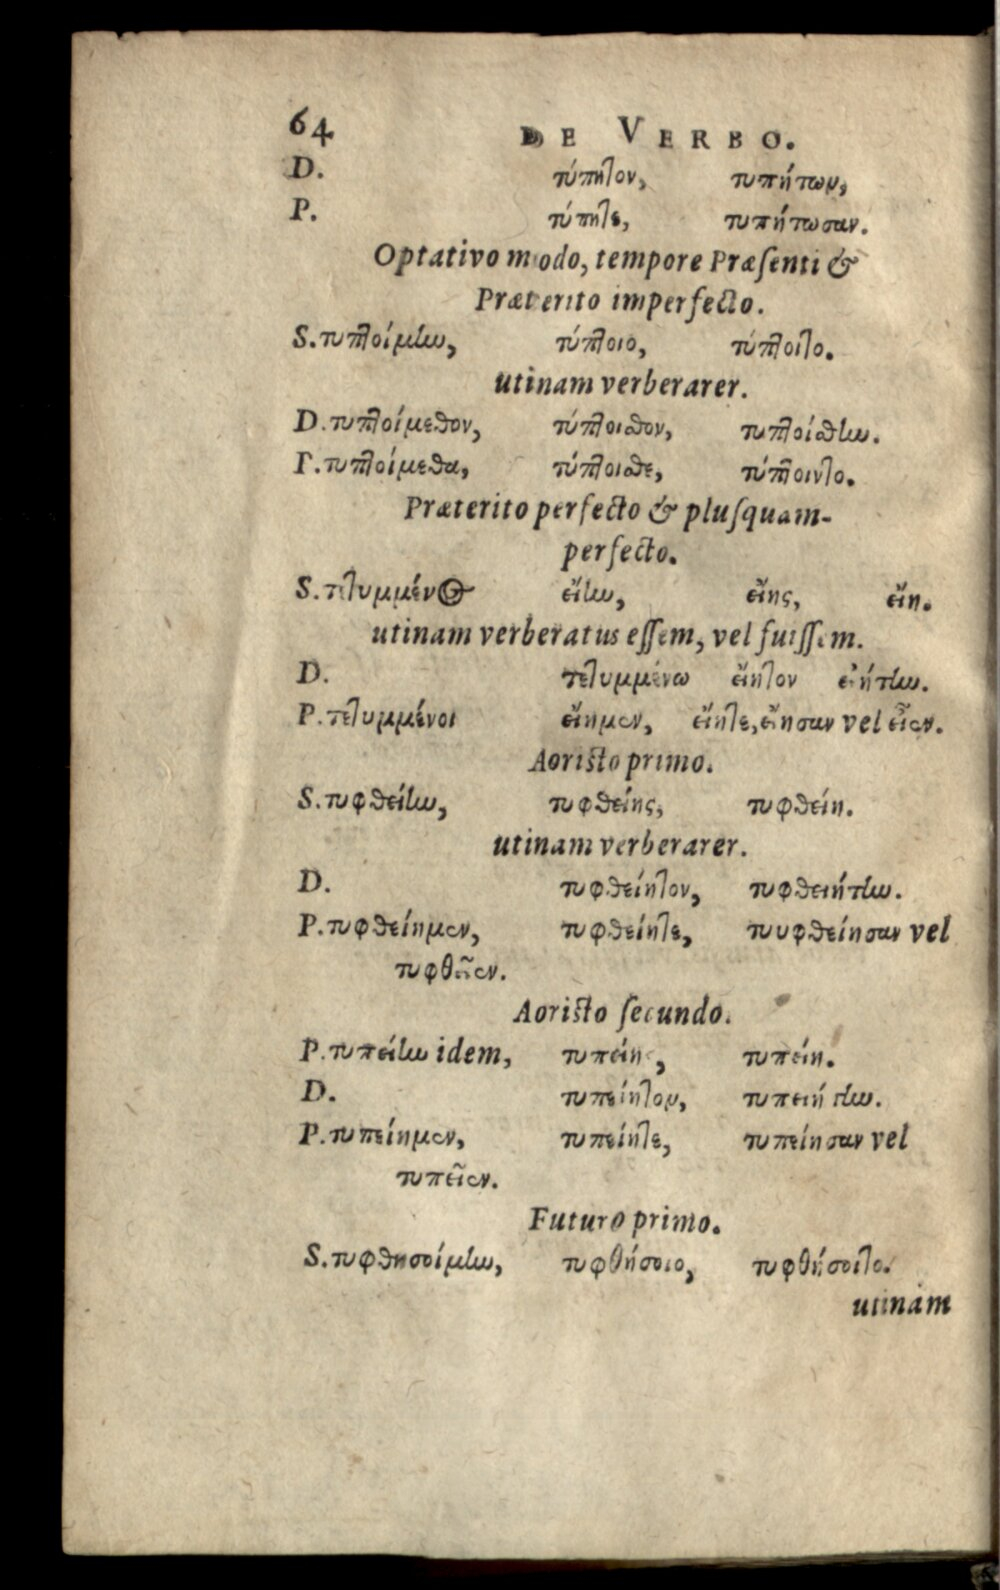 64 DE VERBO.
D. τύπητον, τυπήτων,
P. τύπητε, τυπήτωσαν.
Optativo modo, tempore Præsenti &
Præterito imperfecto.
S. τυπτοίμην, τύπτοιο, τύπτοιτο.
utinam verberarer.
D. τυπτοίμεθον, τύπτοισθον, τυπτοίσθην.
P. τυπτοίμεθα, τύπτοισθε, τύπτοιντο.
Præterito perfecto & plusquam-
perfecto.
S. τετυμμένος εἴην, εἴης, εἴη.
utinam verberatus essem, vel fuissem.
D. τετυμμένω εἴητον εἰήτην.
P. τετυμμένοι εἴημεν, εἴητε, εἴησαν vel εἶεν.
Aoristo primo.
S. τυφθείην, τυφθείης, τυφθείη.
utinam verberarer.
D. τυφθείητον, τυφθειήτην.
P. τυφθείημεν, τυφθείητε, τυυφθείησαν vel
τυφθεῖεν.
Aoristo secundo.
P. τυπείην idem, τυπείης, τυπείη.
D. τυπείητον, τυπειήτην.
P. τυπείημεν, τυπείητε, τυπείησαν vel
τυπεῖεν.
Futuro primo.
S. τυφθησοίμην, τυφθήσοιο, τυφθήσοιτο.
utinam